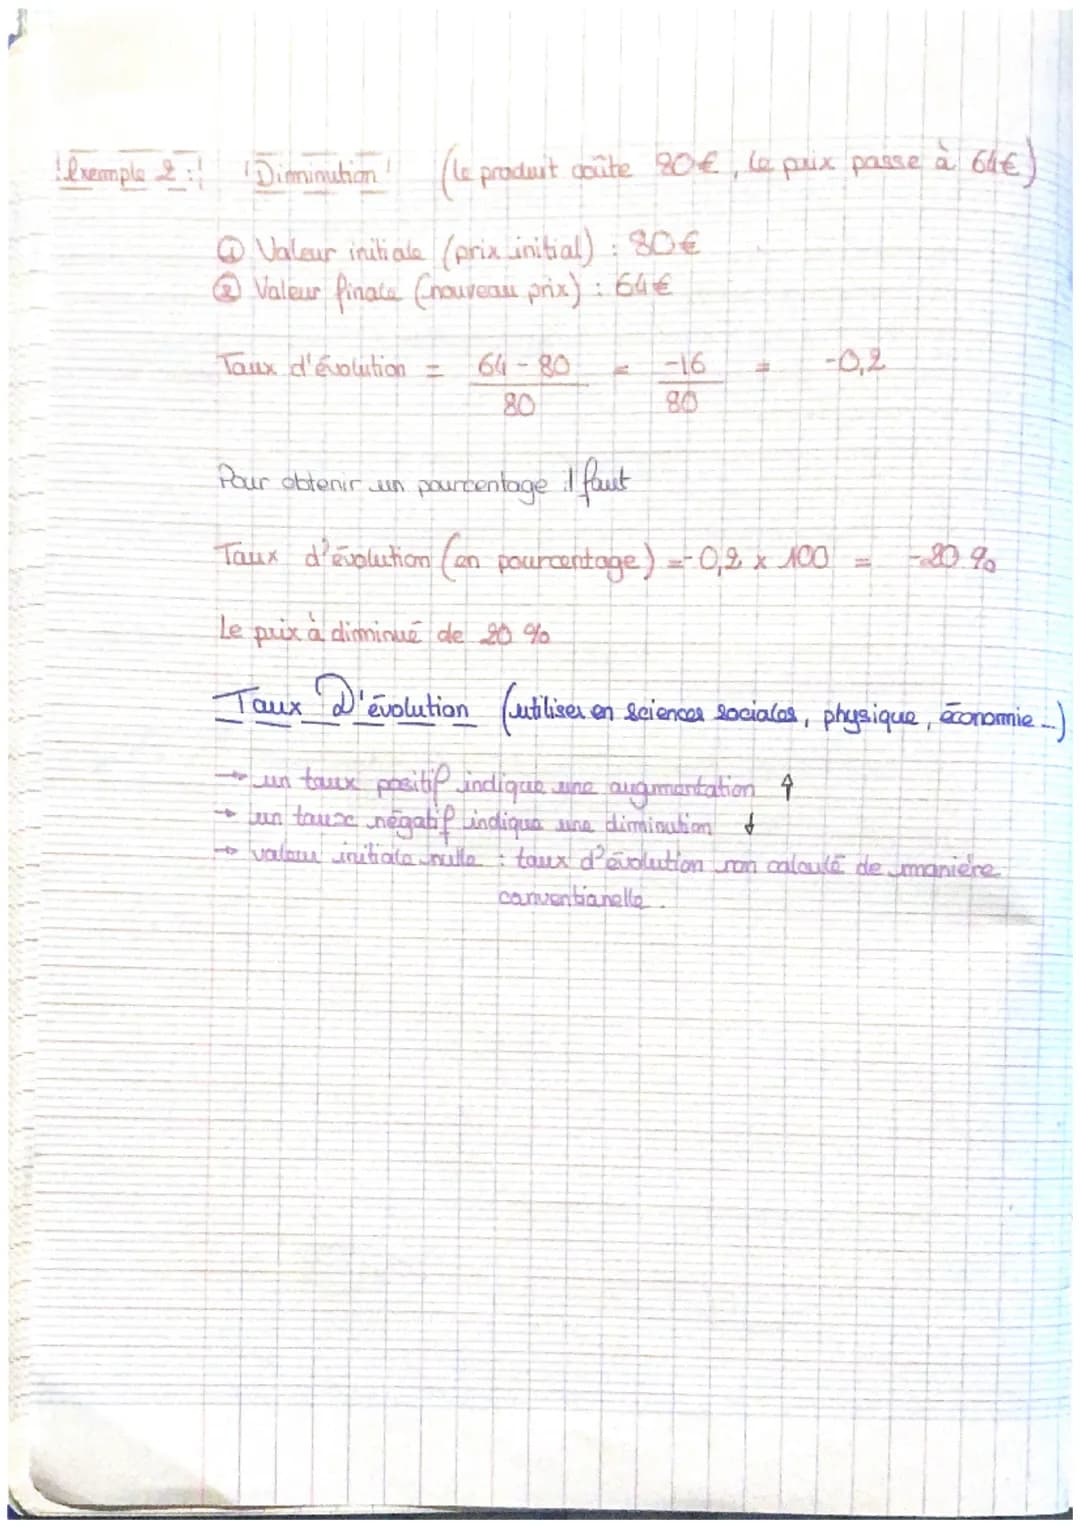 Exemple 2 : Diminution (le produit coûte 80€, le prix passe à 64€)
① Valeur initiale (prix initial) : 80€
② Valeur finale (nouveau prix) : 64€
Taux d'évolution = 64 - 80 / 80 = -16 / 80 = -0,2
Pour obtenir un pourcentage il faut
Taux d'évolution (en pourcentage) = -0,2 x 100 = -20 %
Le prix à diminué de 20 %
Taux D'évolution (utiliser en sciences sociales, physique, économie...)
→ un taux positif indique une augmentation ↑
→ un taux négatif indique une diminution ↓
→ valeur initiale nulle : taux d'évolution non calculé de manière
conventionelle.